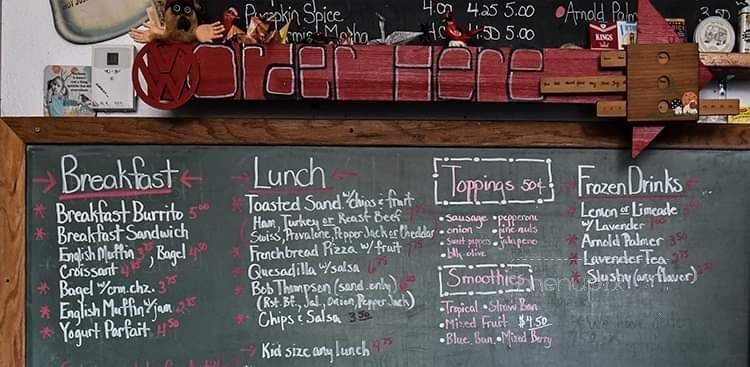 Pumpkin Spice 4.00 4.25 5.00
Arnold Palm
KINGS
Order Here
Breakfast
Breakfast Burrito 5.00
Breakfast Sandwich
English Muffin 3, Bagel 4.50
Croissant
Bagel w/crm.chz. 3.75
English Muffin w/jam
Yogurt Parfait 4.50
Lunch
Toasted Sand w/chips & fruit
Ham, Turkey or Roast Beef
Swiss, Provalone, Pepper Jack or Cheddar
Frenchbread Pizza w/ fruit
Quesadilla w/salsa
Bob Thompson (sand. only)
(Rst. Bf., Jal., Onion, Pepper Jack)
Chips & Salsa 3.50
Kid size any lunch 4.75
Toppings 50¢
• sausage • pepperoni
• onion • pine nuts
• sweet peppers • jalapeno
• blk. olive
Smoothies
• Tropical • Straw Ban
• Mixed Fruit $4.50
• Blue Ban. • Mixed Berry
Frozen Drinks
Lemon or Limeade
w/ Lavender
Arnold Palmer 3.50
Lavender Tea
Slushy (any flavor)
We have